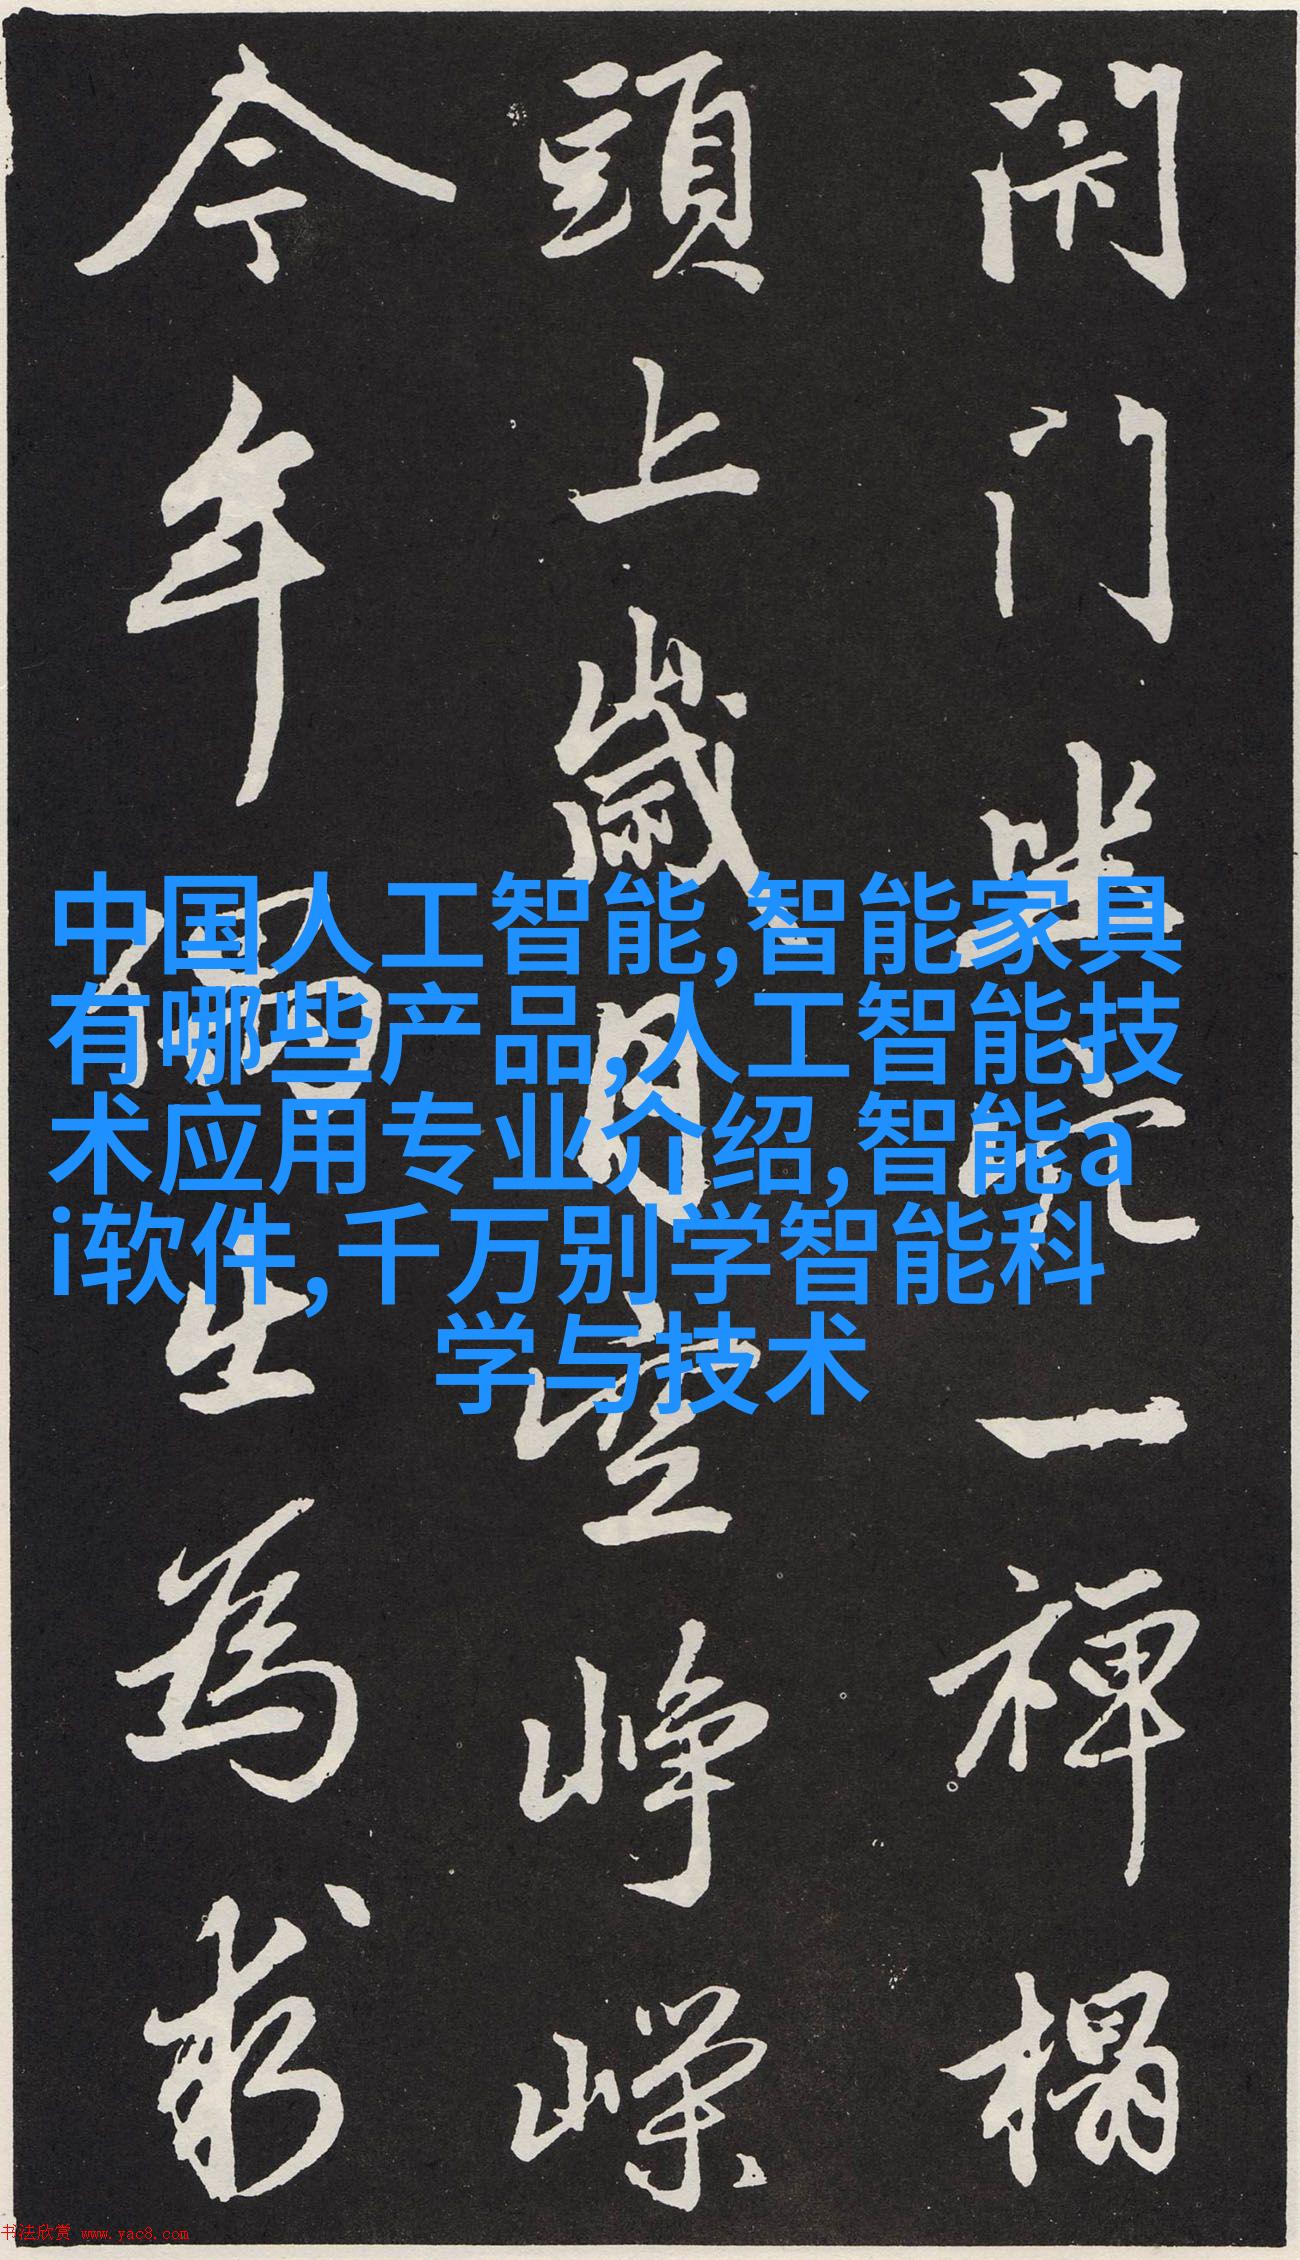 閇门坐穴一禪榻
頭上歲月空崢嶸
今年偶出為求
中国人工智能,智能家具
有哪些产品,人工智能技
术应用专业介绍,智能a
i软件,千万别学智能科
学与技术
书法欣赏 www.yac8.com